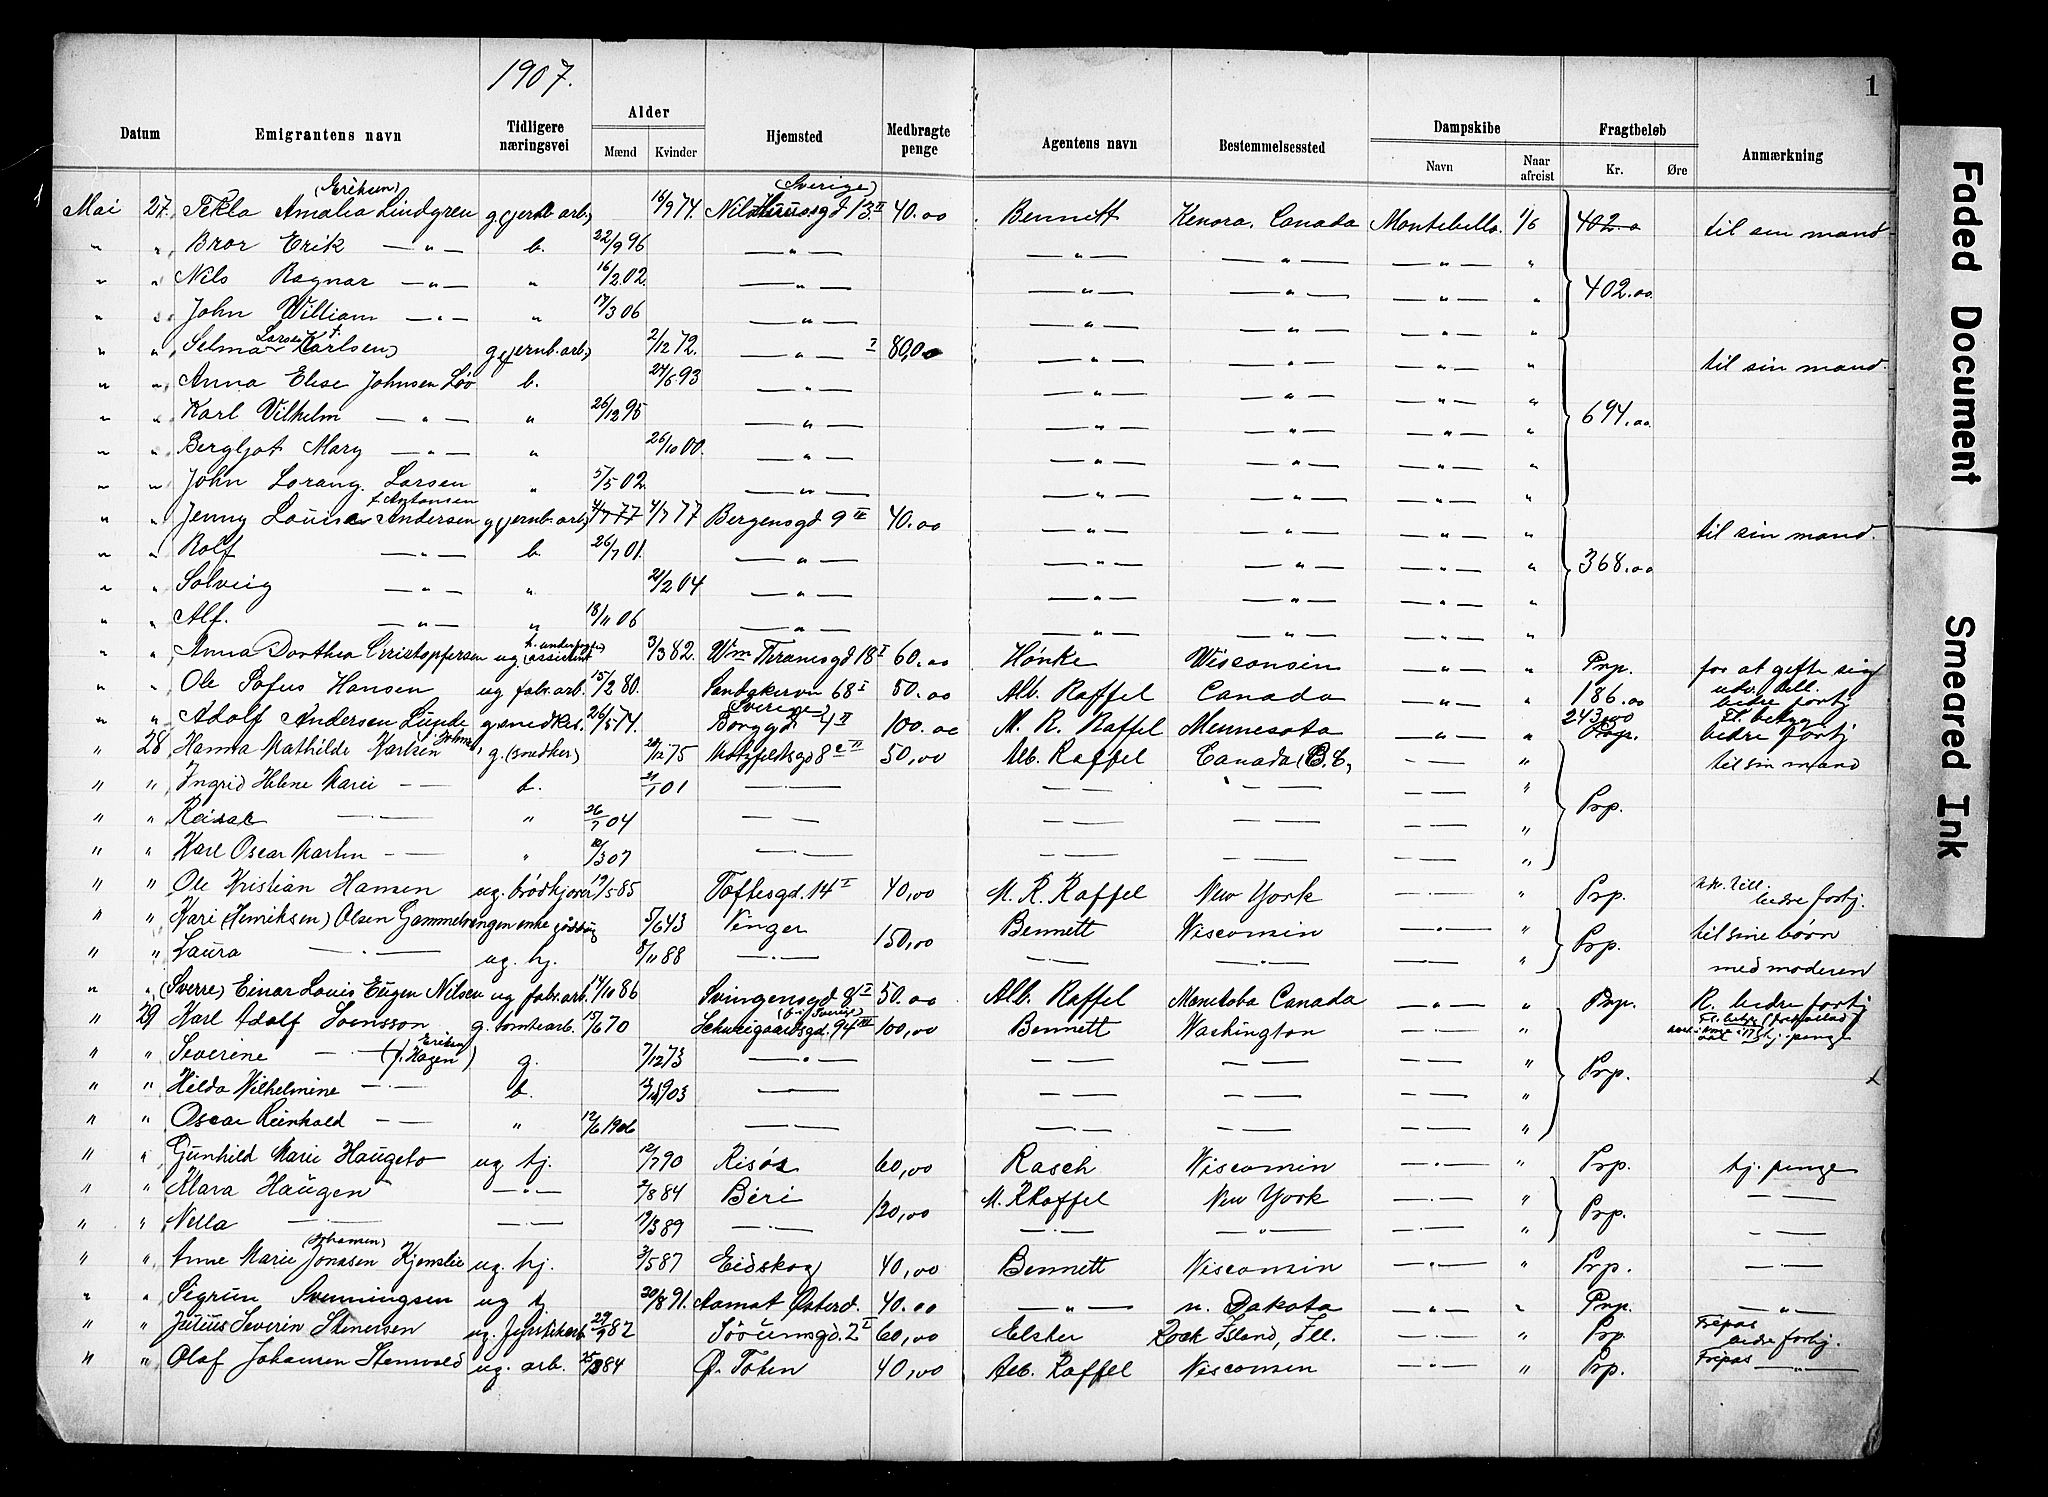 1907.
1
Datum Emigrantens navn Tidligere næringsvei Alder Mænd Kvinder Hjemsted Medbragte penge Agentens navn Bestemmelsessted Dampskibe Navn Naar afreist Fragtbeløb Kr. Øre Anmærkning
(Eriksen) (Sverige)
Mai 27 Tekla Amalia Lindgren g (jernb. arb) 16/9 74 13 II 40.00 Bennett Kenora, Canada Montebello 1/6 402.00 til sin mand
" " Bror Erik —"— b. 22/9 96 —"— —"— —"— —"— "
" " Nils Ragnar —"— " 16/2 02 —"— —"— —"— —"— " 402.00
" " John William —"— " 17/3 06 —"— —"— —"— —"— "
" " Selma Larsen f. Karlsen g (jernb. arb) 2/12 72. —"— I 80,00 —"— —"— —"— " til sin mand.
" " Anna Elise Johnsen Löv b. 24/6 93 —"— —"— —"— —"— "
" " Karl Vilhelm —"— " 26/12 95 —"— —"— —"— —"— " 694.00
" " Bergljot Mary —"— " 26/10 00. —"— —"— —"— —"— "
" " John Lorang. Larsen " 5/5 02. —"— —"— —"— —"— "
" " Jenny Louise f. Antonsen Andersen g (jernb. arb) 4/7 77 4/7 77 Bergensgd 9 II 40.00 —"— —"— —"— " til sin mand.
" " Rolf —"— b. 26/7 01. —"— —"— —"— —"— " 368.00
" " Solveig —"— " 21/2 04 —"— —"— —"— —"— "
" " Alf. —"— " 18/11 06 —"— —"— —"— —"— "
" " Anna Dorthea Cristophersen ug. assistent 3/3 82. Wm Thranesgd 18 I 60.00 Hönke Wisconsin —"— " Prp. for at gifte sig
" " Ole Sofus Hansen ug fabr. arb. 15/2 80. 68 I 50.00 Alb. Raffel Canada —"— " 186.00 udv. till. bedre fortj
(Sverige)
" " Adolf Andersen Lunde g. snedker. 26/5 74. Borggd. 4 II 100.00 M. R. Raffel Mennesota —"— " 243.00 Prp. bedre fortj
" 28 Hanna Mathilde Karlsen g. (snedker) 20/12 75 Motzfeldtsgd 8 c II 50,00 Alb. Raffel Canada (B.C, — " — " til sin mand
" " Ingrid Helene Marie — — b. 21/1 01 — — — — "
" " — — " 26/7 04 — — — — " Prp.
" " Karl Oscar Martin — — " 10/3 07 — — — — "
" " Ole Kristian Hansen ug. brödkjörer 19/5 85 Toftesgd. 14 I 40,00 M. R. Raffel New York — " — " Prp. udv. till. bedre fortj.
" " Kari (Henriksen) Olsen Gammelvengen enke 5/6 43 Vinger 150,00 Bennett Wisconsin — " — " Prp. til sine børn
" " Laura — — ug. tj. 8/11 88 — — — — " med moderen
" " (Sverre) Einar Louis Eugen Nilsen ug fabr. arb. 14/10 86 Svingensgd 8 I 50.00 Alb. Raffel Manitoba Canada —"— " Prp. R. bedre fortj
" 29 Karl Adolf Svensson g. tomtearb. 15/6 70 Schweigaardsgd. 94 III 100,00 Bennett Washington — " — "
" " Severine — (Eriksen f. Hagen) g. 7/12 73 — — — — " Prp. tj. penge
" " Hilda Vilhelmine — — b. 1903 — — — — "
" " Oscar Reinhold — — " 12/6 1906 — — — — "
" " Gunhild Marie Haugeto ug tj. 12/7 90 Risör 60,00 Rasch Wisconsin — " — " Prp. tj. penge
" " Klara Haugen —"— 2/8 84 Biri 120,00 M. R Raffel New York — " — " Prp. — —
" " Nella — — — — 19/3 89 — — — — " — —
(Johansen)
" " Anne Marie Jonasen Kjenslie ug. tj. 3/5 87 Eidskog 40,00 Bennett Wisconsin — " — " Prp. — —
" " Sigrun Svenningsen ug tj. 20/8 91. Aamot Østerd. 40.00 —"— n. Dakota —"— " Prp. —"—
" " Julius Severin Stenersen ug. 82 2 I 60,00 Elster Rock Island, Ill. — " — " Prp. Fripas bedre fortj.
" " Olaf Johansen Stenvold ug. arb. 84 Ø. Toten 40,00 Alb. Raffel Wisconsin — " — " Prp. Fripas —"—
Faded Document
Smeared Ink